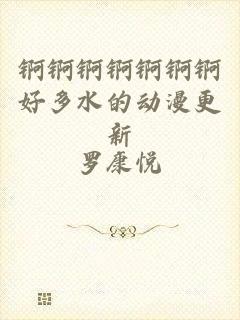 锕锕锕锕锕锕锕
好多水的动漫更
新
罗康悦